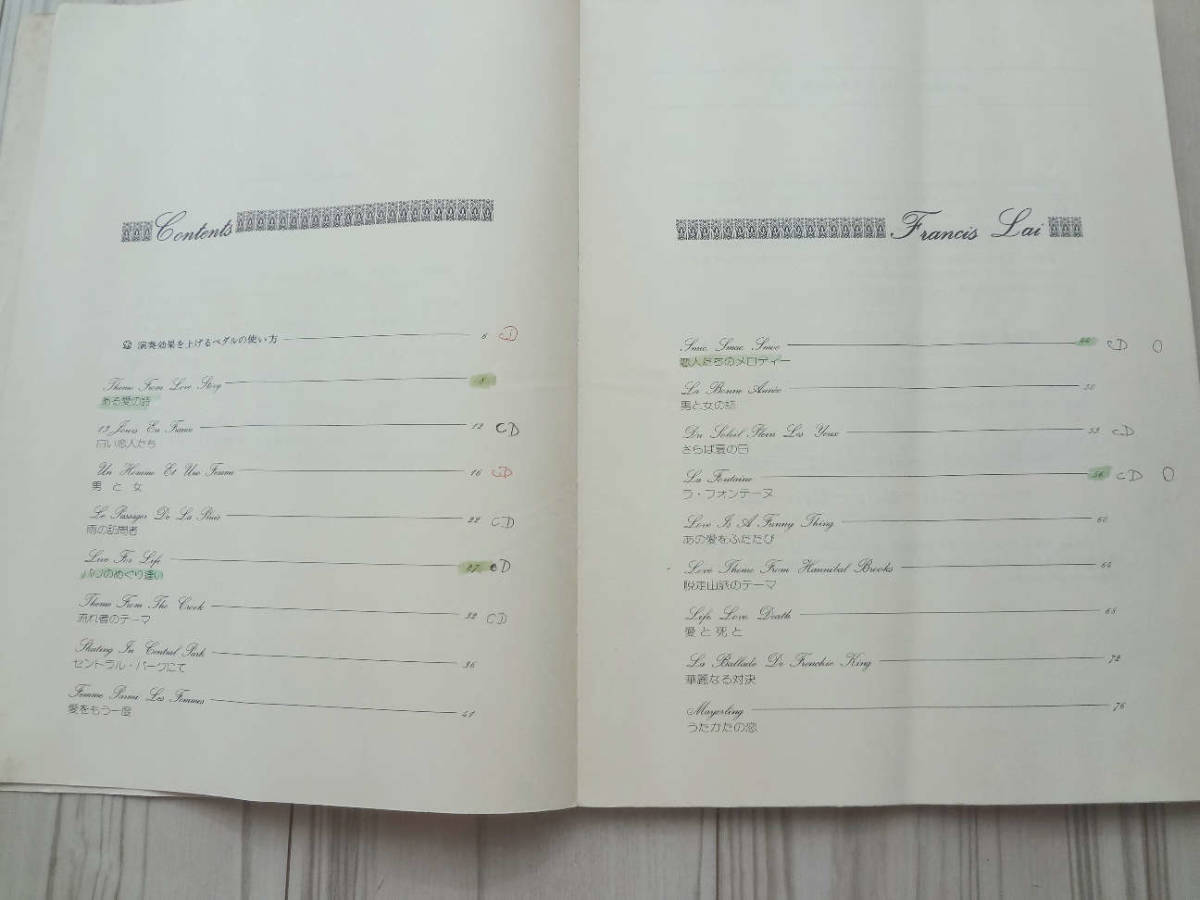 Contents
演奏効果を上げるペダルの使い方 6 CD
Theme From Love Story 8
ある愛の詩
13 Jours En France 12 CD
白い恋人たち
Un Homme Et Une Femme 16 CD
男と女
Le Passager De La Pluie 22 CD
雨の訪問者
Live For Life 27 CD
パリのめぐり逢い
Theme From The Crook 32 CD
流れ者のテーマ
Skating In Central Park 36
セントラル・パークにて
Femme Parmi Les Femmes 41
愛をもう一度
Francis Lai
Smic Smac Smoc CD O
恋人たちのメロディー
La Bonne Année 50
男と女の詩
Du Soleil Plein Les Yeux 53 CD
さらば夏の日
La Fontaine 56 CD O
ラ・フォンテーヌ
Love Is A Funny Thing 60
あの愛をふたたび
Love Theme From Hannibal Brooks 64
脱走山脈のテーマ
Life Love Death 68
愛と死と
La Ballade De Frenchie King 72
華麗なる対決
Mayerling 76
うたかたの恋